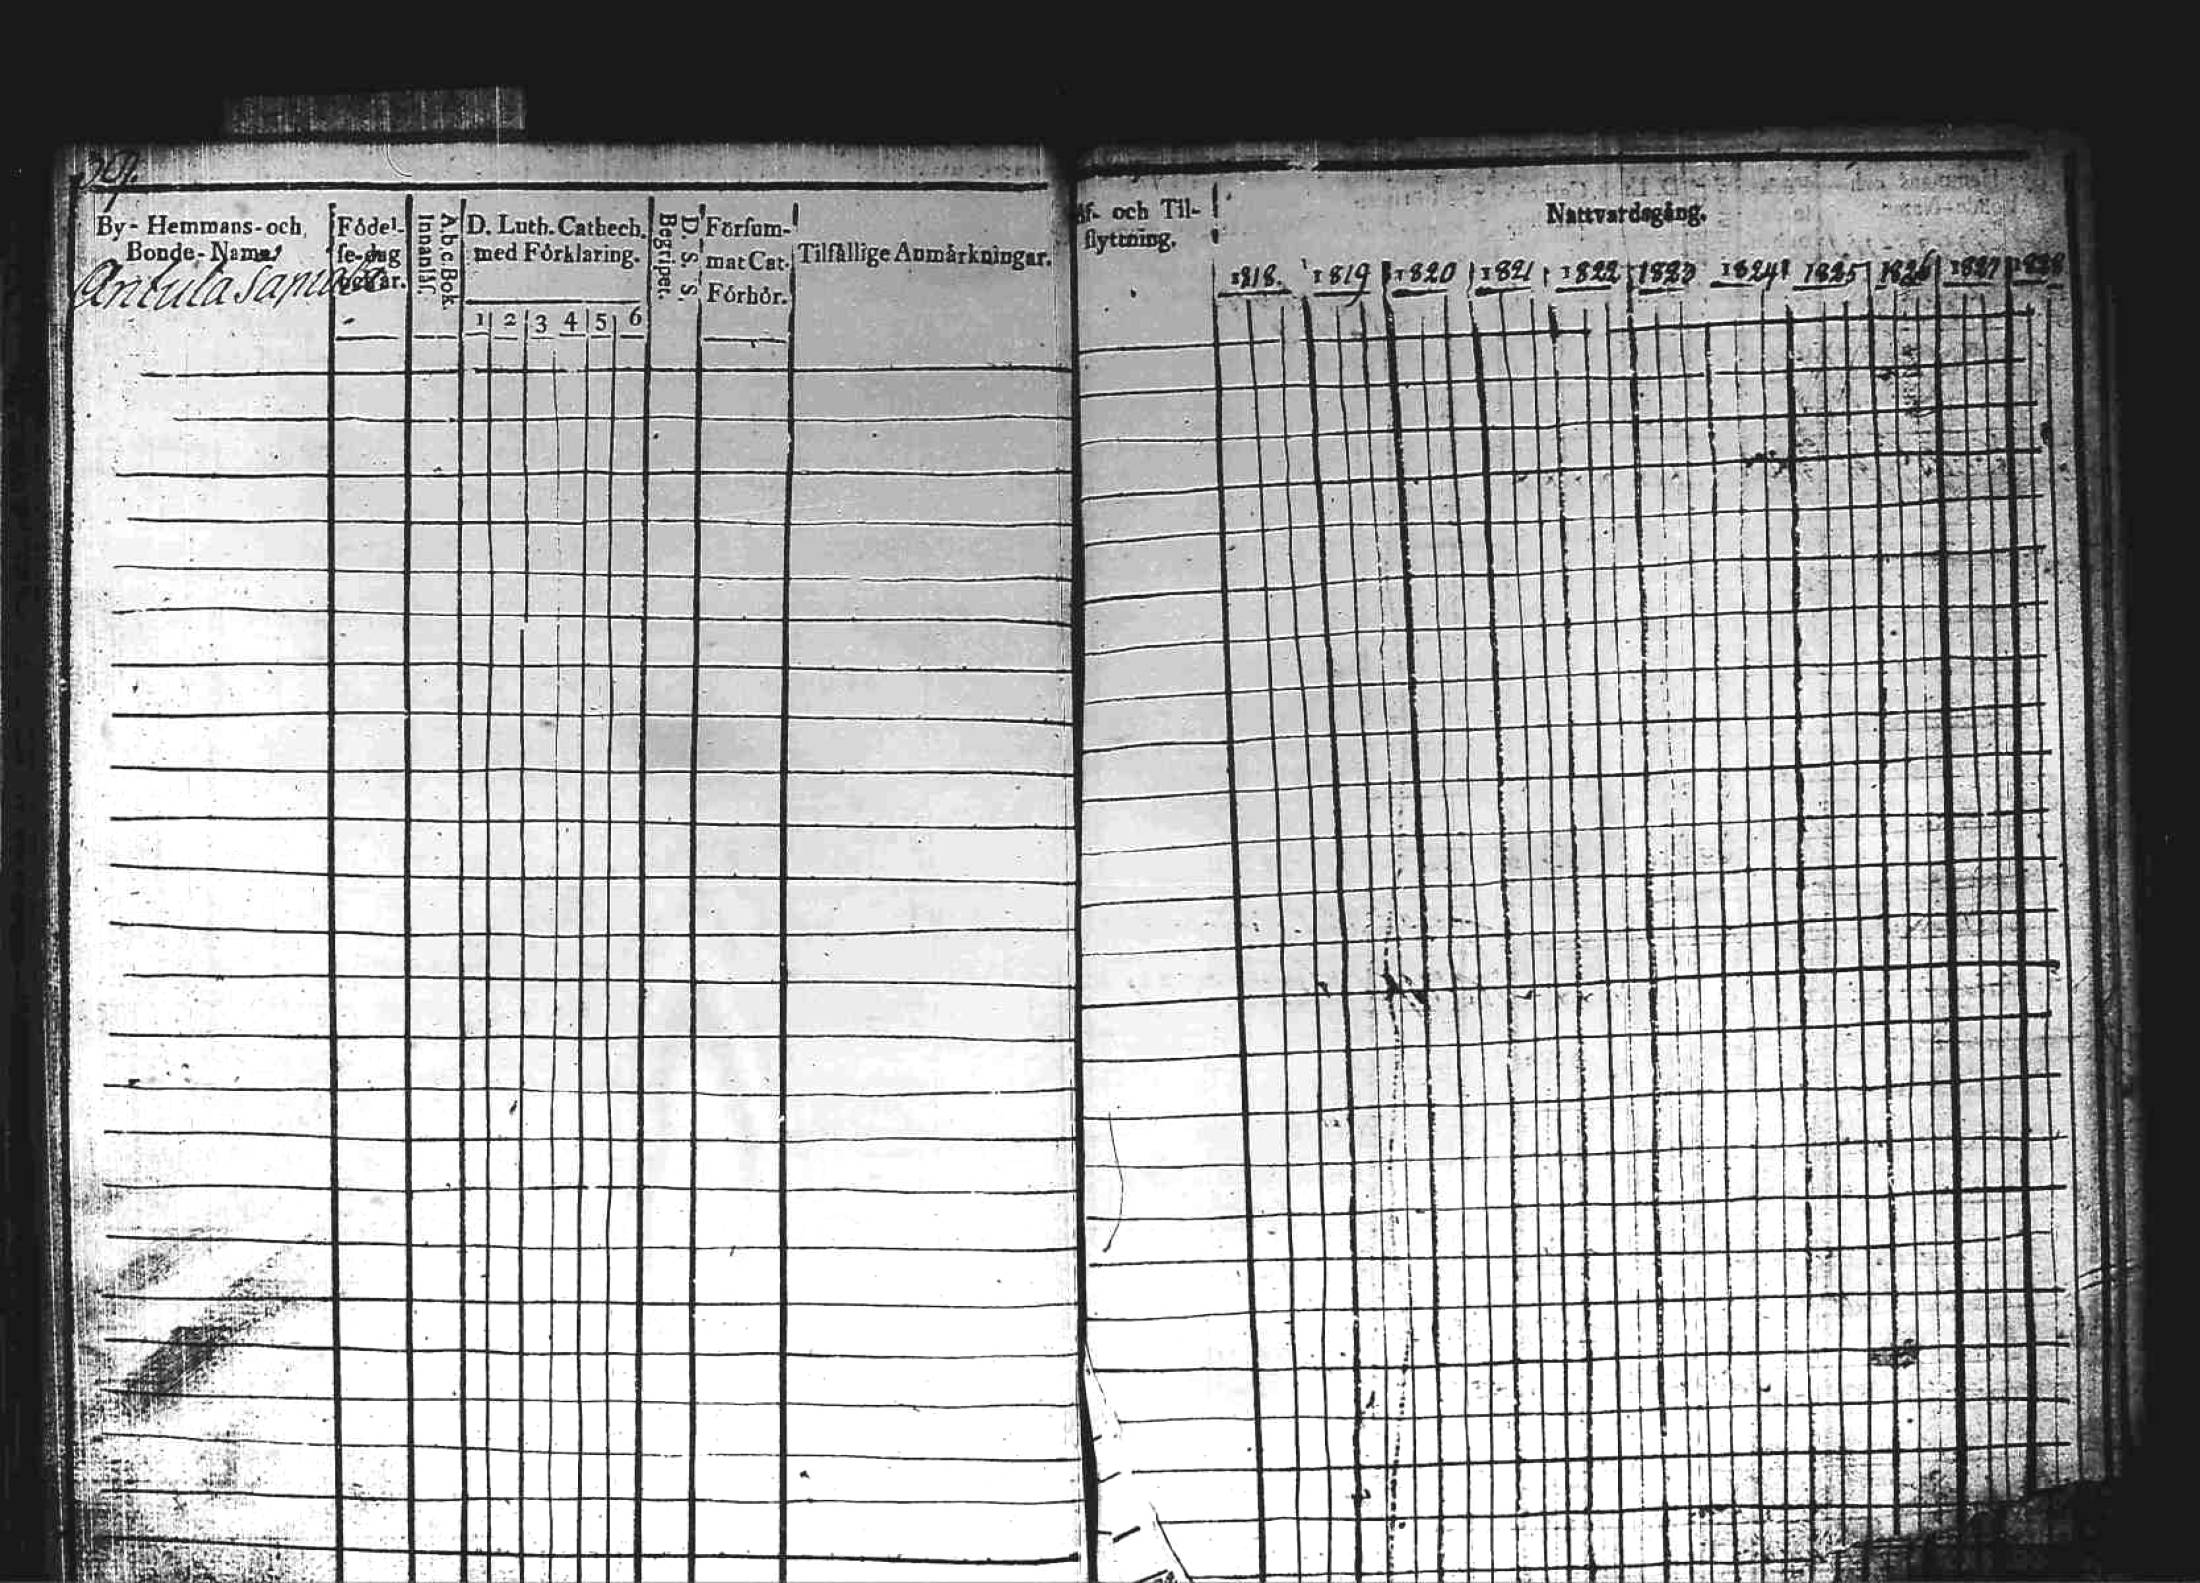 By- Hemmans- och
Bonde- Namn
Antula samma
Födel-
se- dag
och år.
A b c Bok.
Innanläs.
D. Luth. Cathech.
med Förklaring.
1 2 3 4 5 6
D. S. S.
Begripet.
Försum-
mat Cat.
Förhör.
Tilfällige Anmärkningar.
Af- och Til-
flyttning.
Nattvardsgång.
1818. 1819 1820 1821 1822 1823 1824 1825 1826 1827 1828